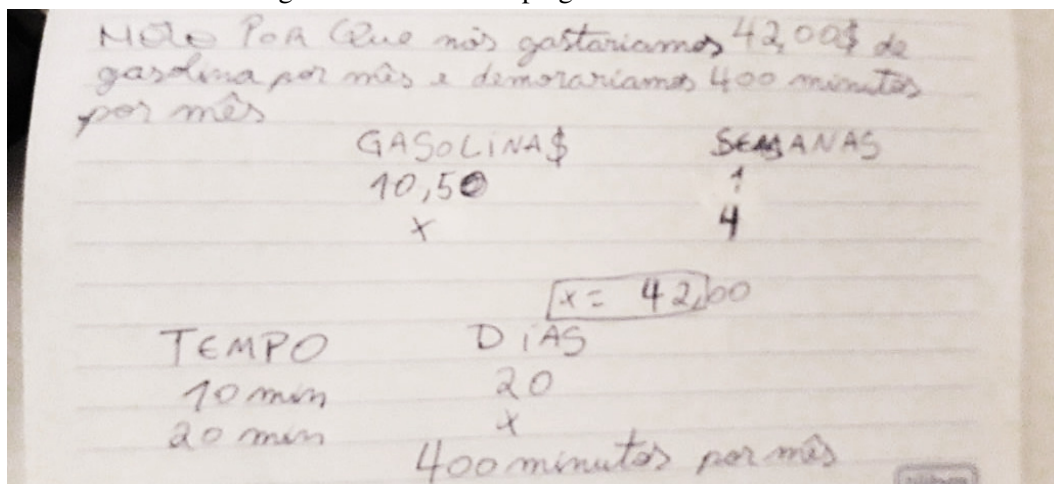 Moto Por Que nós gastariamos 42,00$ de
gasolina por mês e demorariamos 400 minutos
por mês
GASOLINA$ SEMANAS
10,50 1
x 4
x = 42,00
TEMPO DIAS
10 min 20
20 min x
400 minutos por mês